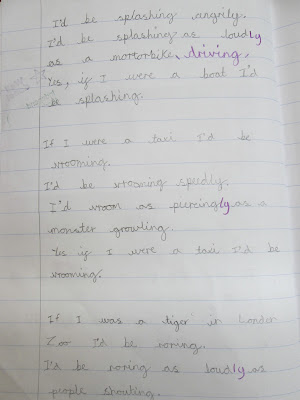 I'd be splashing angrily.
I'd be splashing as loudly
as a mortorbike, driving.
Yes, if I were a boat I'd
be splashing.
If I were a taxi I'd be
vrooming.
I'd be vrooming speedly.
I'd vroom as piercingly as a
monster growling.
Yes if I were a taxi I'd be
vrooming.
If I was a tiger in London
Zoo I'd be roring.
I'd be roring as loudly as
people shouting.